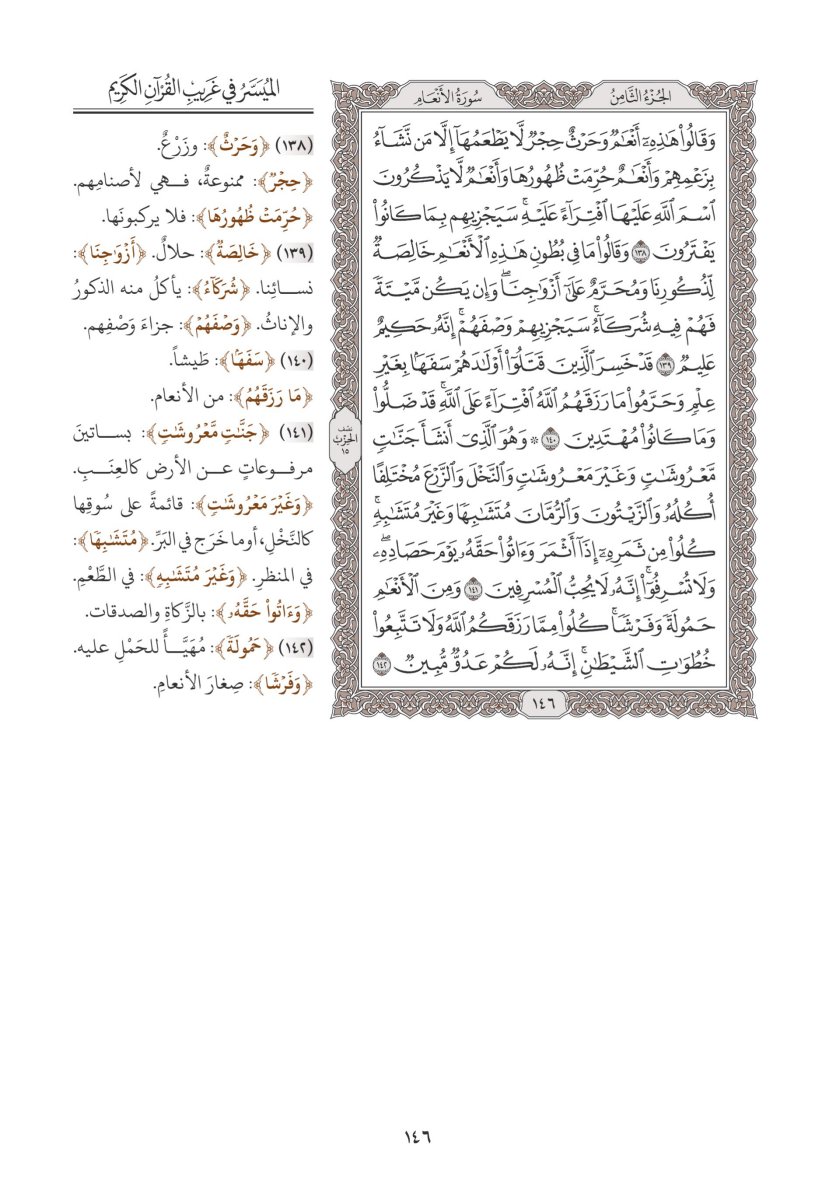 الجُزْءُ الثَّامِنُ
سُورَةُ الأَنْعَامِ
وَقَالُواْ هَٰذِهِۦٓ أَنْعَٰمٞ وَحَرْثٌ حِجْرٞ لَّا يَطْعَمُهَآ إِلَّا مَن نَّشَآءُ
بِزَعْمِهِمْ وَأَنْعَٰمٌ حُرِّمَتْ ظُهُورُهَا وَأَنْعَٰمٞ لَّا يَذْكُرُونَ
ٱسْمَ ٱللَّهِ عَلَيْهَا ٱفْتِرَآءً عَلَيْهِۚ سَيَجْزِيهِم بِمَا كَانُواْ
يَفْتَرُونَ ١٣٨ وَقَالُواْ مَا فِي بُطُونِ هَٰذِهِ ٱلْأَنْعَٰمِ خَالِصَةٞ
لِّذُكُورِنَا وَمُحَرَّمٌ عَلَىٰٓ أَزْوَٰجِنَاۖ وَإِن يَكُن مَّيْتَةٗ
فَهُمْ فِيهِ شُرَكَآءُۚ سَيَجْزِيهِمْ وَصْفَهُمْۚ إِنَّهُۥ حَكِيمٌ
عَلِيمٞ ١٣٩ قَدْ خَسِرَ ٱلَّذِينَ قَتَلُوٓاْ أَوْلَٰدَهُمْ سَفَهَۢا بِغَيْرِ
عِلْمٖ وَحَرَّمُواْ مَا رَزَقَهُمُ ٱللَّهُ ٱفْتِرَآءً عَلَى ٱللَّهِۚ قَدْ ضَلُّواْ
وَمَا كَانُواْ مُهْتَدِينَ ١٤٠ ۞ وَهُوَ ٱلَّذِيٓ أَنشَأَ جَنَّٰتٖ
مَّعْرُوشَٰتٖ وَغَيْرَ مَعْرُوشَٰتٖ وَٱلنَّخْلَ وَٱلزَّرْعَ مُخْتَلِفًا
أُكُلُهُۥ وَٱلزَّيْتُونَ وَٱلرُّمَّانَ مُتَشَٰبِهٗا وَغَيْرَ مُتَشَٰبِهٖۚ
كُلُواْ مِن ثَمَرِهِۦٓ إِذَآ أَثْمَرَ وَءَاتُواْ حَقَّهُۥ يَوْمَ حَصَادِهِۦۖ
وَلَا تُسْرِفُوٓاْۚ إِنَّهُۥ لَا يُحِبُّ ٱلْمُسْرِفِينَ ١٤١ وَمِنَ ٱلْأَنْعَٰمِ
حَمُولَةٗ وَفَرْشٗاۚ كُلُواْ مِمَّا رَزَقَكُمُ ٱللَّهُ وَلَا تَتَّبِعُواْ
خُطُوَٰتِ ٱلشَّيْطَٰنِۚ إِنَّهُۥ لَكُمْ عَدُوّٞ مُّبِينٞ ١٤٢
نصف
الحزب
١٥
١٤٦
المُيَسَّرُ في غَرِيبِ القُرْآنِ الكَرِيمِ
(١٣٨) ﴿وَحَرْثٌ﴾: وزَرْعٌ.
﴿حِجْرٞ﴾: ممنوعةٌ، فـهي لأصنامِهم.
﴿حُرِّمَتْ ظُهُورُهَا﴾: فلا يركبونَها.
(١٣٩) ﴿خَالِصَةٞ﴾: حلالٌ. ﴿أَزْوَٰجِنَا﴾:
نسـائِنا. ﴿شُرَكَآءُ﴾: يأكلُ منه الذكورُ
والإناثُ. ﴿وَصْفَهُمْ﴾: جزاءَ وَصْفِهم.
(١٤٠) ﴿سَفَهَۢا﴾: طَيشاً.
﴿مَا رَزَقَهُمُ﴾: من الأنعام.
(١٤١) ﴿جَنَّٰتٖ مَّعْرُوشَٰتٖ﴾: بسـاتينَ
مرفـوعاتٍ عـن الأرض كالعِنَـبِ.
﴿وَغَيْرَ مَعْرُوشَٰتٖ﴾: قائمةً على سُوقِها
كالنَّخْلِ، أوما خَرَج في البَرِّ. ﴿مُتَشَٰبِهٗا﴾:
في المنظرِ. ﴿وَغَيْرَ مُتَشَٰبِهٖ﴾: في الطَّعْمِ.
﴿وَءَاتُواْ حَقَّهُۥ﴾: بالزَّكاةِ والصدقات.
(١٤٢) ﴿حَمُولَةٗ﴾: مُهَيَّـأً للحَمْلِ عليه.
﴿وَفَرْشٗا﴾: صِغارَ الأنعامِ.
١٤٦